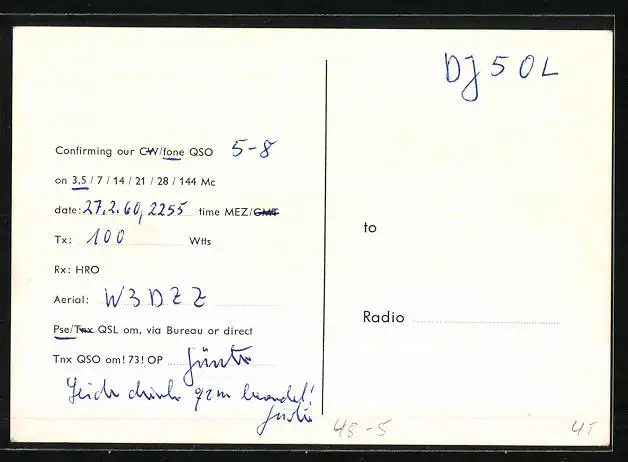 DJ5OL
Confirming our CW/fone QSO 5-8
on 3,5 / 7 / 14 / 21 / 28 / 144 Mc
date: 27.2.60, 2255 time MEZ/GMT
Tx: 100 Wtts
Rx: HRO
Aerial: W3DZZ
Pse/Tnx QSL om, via Bureau or direct
Tnx QSO om! 73! OP Günter
to
Radio
48-5
4T